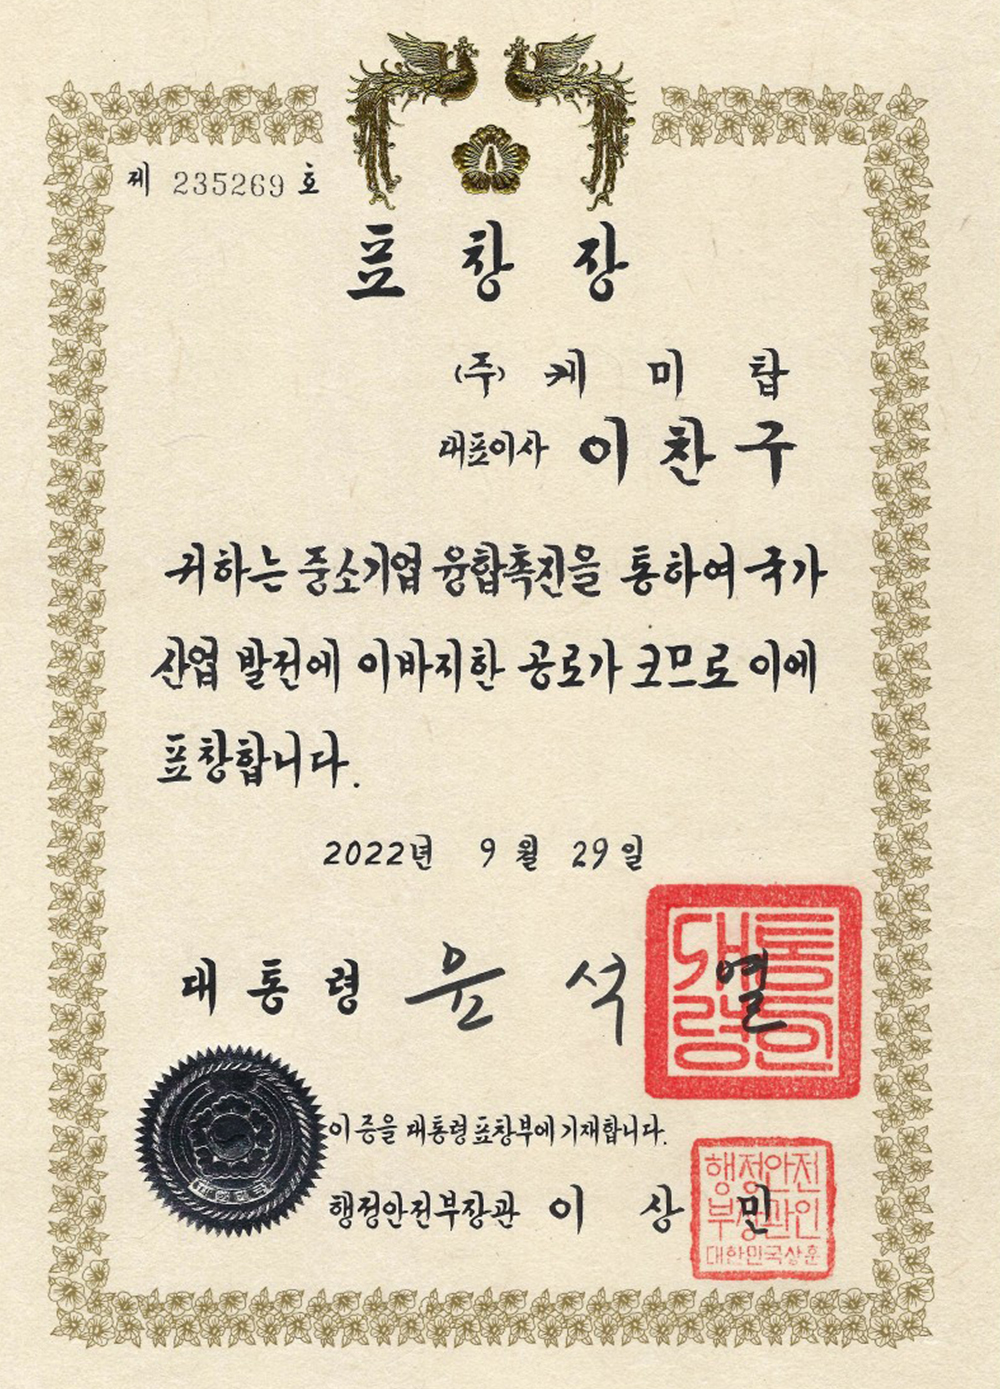 제 235269 호
표 창 장
(주) 케 미 탑
대표이사 이 찬 구
귀하는 중소기업 융합촉진을 통하여 국가
산업 발전에 이바지한 공로가 크므로 이에
표창합니다.
2022년 9 월 29 일
대 통 령 윤 석 열
대통
령인
이 증을 대통령표창부에 기재합니다.
행정안전부장관 이 상 민
행정안전
부장관인
대한민국상훈
대한민국